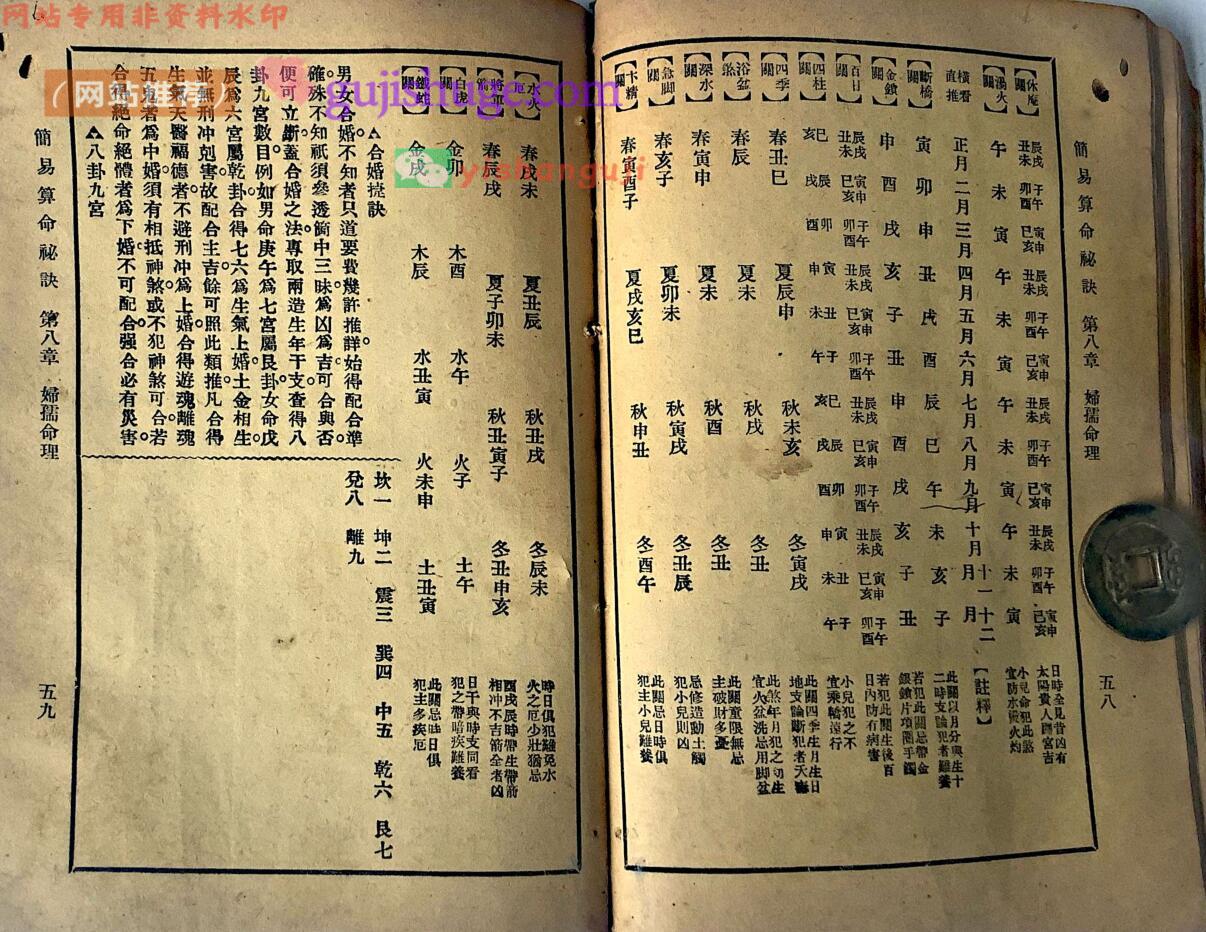 网站专用非资料水印
网站推荐
gujishuge.com
yishanguji
簡易算命祕訣 第八章 婦孺命理 五八
【休庵關】 辰戌丑未 子午卯酉 寅申巳亥 辰戌丑未 子午卯酉 寅申巳亥 辰戌丑未 子午卯酉 寅申巳亥 辰戌丑未 子午卯酉 寅申巳亥 日時全見昔凶有太陽貴人臨宮吉
【湯火關】 午 未 寅 午 未 寅 午 未 寅 午 未 寅 小兒命犯此煞宜防水火灼
橫看直推 正月 二月 三月 四月 五月 六月 七月 八月 九月 十月 十一月 十二月 【註釋】
【斷橋關】 寅 卯 申 丑 戌 酉 辰 巳 午 未 亥 子 此關以月分與生十二時支論犯者難養
【金鎖關】 申 酉 戌 亥 子 丑 申 酉 戌 亥 子 丑 若犯此關忌帶金銀鎖片項圈手鐲
【百日關】 辰戌丑未 寅申巳亥 子午卯酉 辰戌丑未 寅申巳亥 子午卯酉 辰戌丑未 寅申巳亥 子午卯酉 辰戌丑未 寅申巳亥 子午卯酉 若犯此關生後百日內防有病害
【四柱關】 巳亥 辰戌 卯酉 寅申 丑未 子午 巳亥 辰戌 卯酉 寅申 丑未 子午 小兒犯之不宜乘轎遠行
【四季關】 春丑巳 夏辰申 秋未亥 冬寅戌 此關四季生月生日地支論斷犯者天
【浴盆煞】 春辰 夏未 秋戌 冬丑 此煞年月犯之初生宜火盆洗忌用脚盆
【深水關】 春寅申 夏未 秋酉 冬丑 此關童限無忌主破財多憂
【急脚關】 春亥子 夏卯未 秋寅戌 冬丑辰 忌修造動土觸犯小兒則凶
【卞精關】 春寅酉子 夏戌亥巳 秋申丑 冬酉午 此關忌日時俱犯主小兒難養
【水火關】 春戌未 夏丑辰 秋丑戌 冬辰未 時日俱犯難免水火之厄少壯猶忌
【將軍箭】 春辰戌 夏子卯未 秋丑寅子 冬丑申亥 酉戌辰時帶生帶箭相冲不吉箭全者凶
【白虎關】 金卯 木酉 水午 火子 土午 日干與時支同看犯之帶暗疾難養
【鐵蛇關】 金戌 木辰 水丑寅 火未申 土丑寅 此關忌時日俱犯主多疾厄
△合婚捷訣
男女合婚不知者只道要費幾許推詳始得配合準
確。殊不知祇須參透箇中三昧爲凶爲吉可合與否
便可立斷。蓋合婚之法專取兩造生年干支查得八
卦九宮數目。例如男命庚午爲七宮屬艮卦女命戊
辰爲六宮屬乾卦合得七六爲生氣上婚土金相生
並無刑冲剋害。故配合主吉餘可照此類推凡合得
生氣天醫福德者不避刑冲爲上婚合得遊魂離魂
五鬼者爲中婚須有相抵神煞或不犯神煞可合若
合得絕命絕體者爲下婚不可配合强合必有災害
△八卦九宮
坎一 坤二 震三 巽四 中五 乾六 艮七
兌八 離九
簡易算命祕訣 第八章 婦孺命理 五九